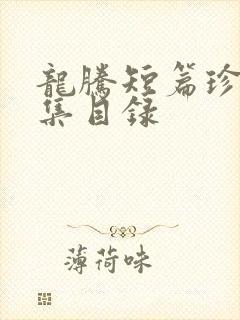 龍騰短篇珍
集目錄
薄荷味